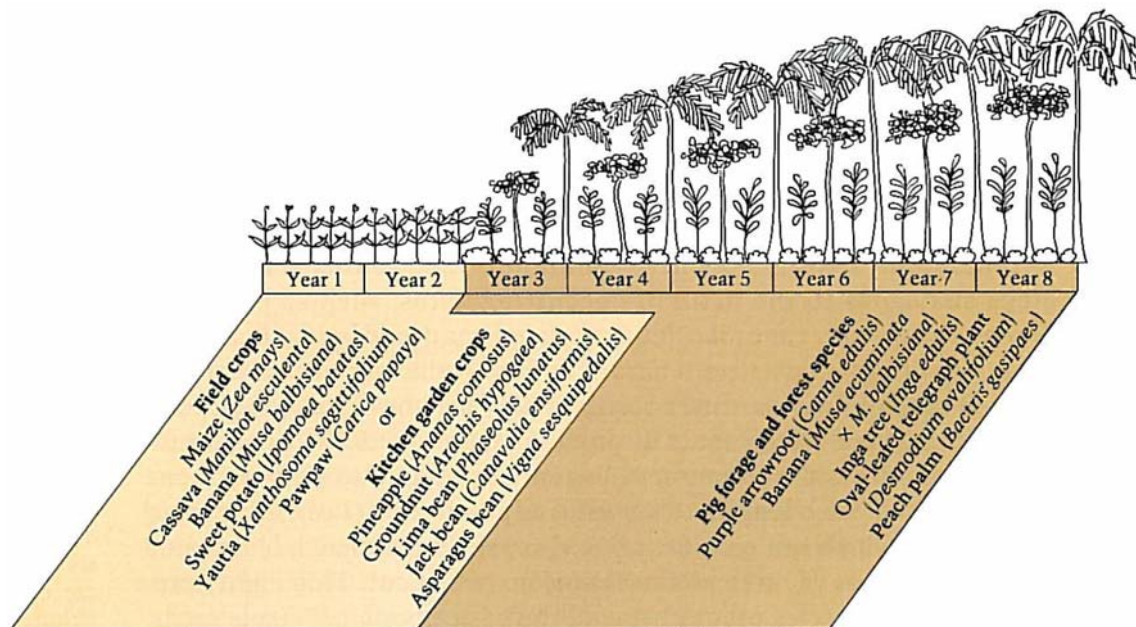 Year 1
Year 2
Year 3
Year 4
Year 5
Year 6
Year 7
Year 8
Field crops
Maize (Zea mays)
Cassava (Manihot esculenta)
Banana (Musa balbisiana)
Sweet potato (Ipomoea batatas)
Yautia (Xanthosoma sagittifolium)
Pawpaw (Carica papaya)
or
Kitchen garden crops
Pineapple (Ananas comosus)
Groundnut (Arachis hypogaea)
Lima bean (Phaseolus lunatus)
Jack bean (Canavalia ensiformis)
Asparagus bean (Vigna sesquipedalis)
Pig forage and forest species
Purple arrowroot (Canna edulis)
Banana (Musa acuminata
× M. balbisiana)
Inga tree (Inga edulis)
Oval-leafed telegraph plant
(Desmodium ovalifolium)
Peach palm (Bactris gasipaes)